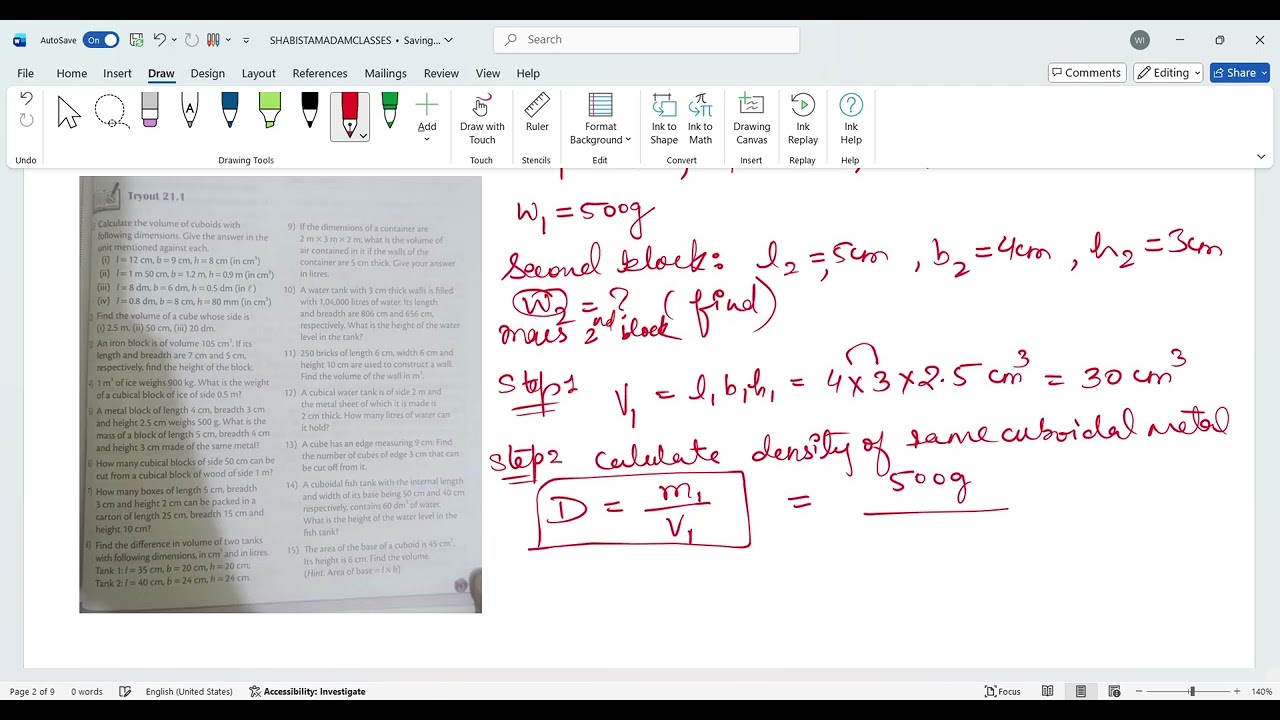 AutoSave On SHABISTAMADAMCLASSES • Saving... Search WI
File Home Insert Draw Design Layout References Mailings Review View Help Comments Editing Share
Add Draw with Touch Ruler Format Background Ink to Shape Ink to Math Drawing Canvas Ink Replay Ink Help
Undo Drawing Tools Touch Stencils Edit Convert Insert Replay Help
Tryout 21.1
Calculate the volume of cuboids with
following dimensions. Give the answer in the
unit mentioned against each.
(i) l = 12 cm, b = 9 cm, h = 8 cm (in cm³)
(ii) l = 1 m 50 cm, b = 1.2 m, h = 0.9 m (in cm³)
(iii) l = 8 dm, b = 6 dm, h = 0.5 dm (in ℓ)
(iv) l = 0.8 dm, b = 8 cm, h = 80 mm (in cm³)
Find the volume of a cube whose side is
(i) 2.5 m, (ii) 50 cm, (iii) 20 dm.
An iron block is of volume 105 cm³. If its
length and breadth are 7 cm and 5 cm,
respectively, find the height of the block.
1 m³ of ice weighs 900 kg. What is the weight
of a cubical block of ice of side 0.5 m?
A metal block of length 4 cm, breadth 3 cm
and height 2.5 cm weighs 500 g. What is the
mass of a block of length 5 cm, breadth 4 cm
and height 3 cm made of the same metal?
How many cubical blocks of side 50 cm can be
cut from a cubical block of wood of side 1 m?
How many boxes of length 5 cm, breadth
3 cm and height 2 cm can be packed in a
carton of length 25 cm, breadth 15 cm and
height 10 cm?
Find the difference in volume of two tanks
with following dimensions, in cm³ and in litres.
Tank 1: l = 35 cm, b = 20 cm, h = 20 cm;
Tank 2: l = 40 cm, b = 24 cm, h = 24 cm.
9) If the dimensions of a container are
2 m × 3 m × 2 m, what is the volume of
air contained in it if the walls of the
container are 5 cm thick. Give your answer
in litres.
10) A water tank with 3 cm thick walls is filled
with 1,04,000 litres of water. Its length
and breadth are 806 cm and 656 cm,
respectively. What is the height of the water
level in the tank?
11) 250 bricks of length 6 cm, width 6 cm and
height 10 cm are used to construct a wall.
Find the volume of the wall in m³.
12) A cubical water tank is of side 2 m and
the metal sheet of which it is made is
2 cm thick. How many litres of water can
it hold?
13) A cube has an edge measuring 9 cm. Find
the number of cubes of edge 3 cm that can
be cut off from it.
14) A cuboidal fish tank with the internal length
and width of its base being 50 cm and 40 cm
respectively, contains 60 dm³ of water.
What is the height of the water level in the
fish tank?
15) The area of the base of a cuboid is 45 cm².
Its height is 6 cm. Find the volume.
(Hint: Area of base = l × b)
W₁ = 500g
Second block: l₂ = 5cm, b₂ = 4cm, h₂ = 3cm
W₂ = ? (find)
mass 2nd block
Step1 V₁ = l₁b₁h₁ = 4 × 3 × 2.5 cm³ = 30 cm³
Step2 calculate density of same cuboidal metal
D = m₁/V₁ = 500g
Page 2 of 9 0 words English (United States) Accessibility: Investigate Focus 140%